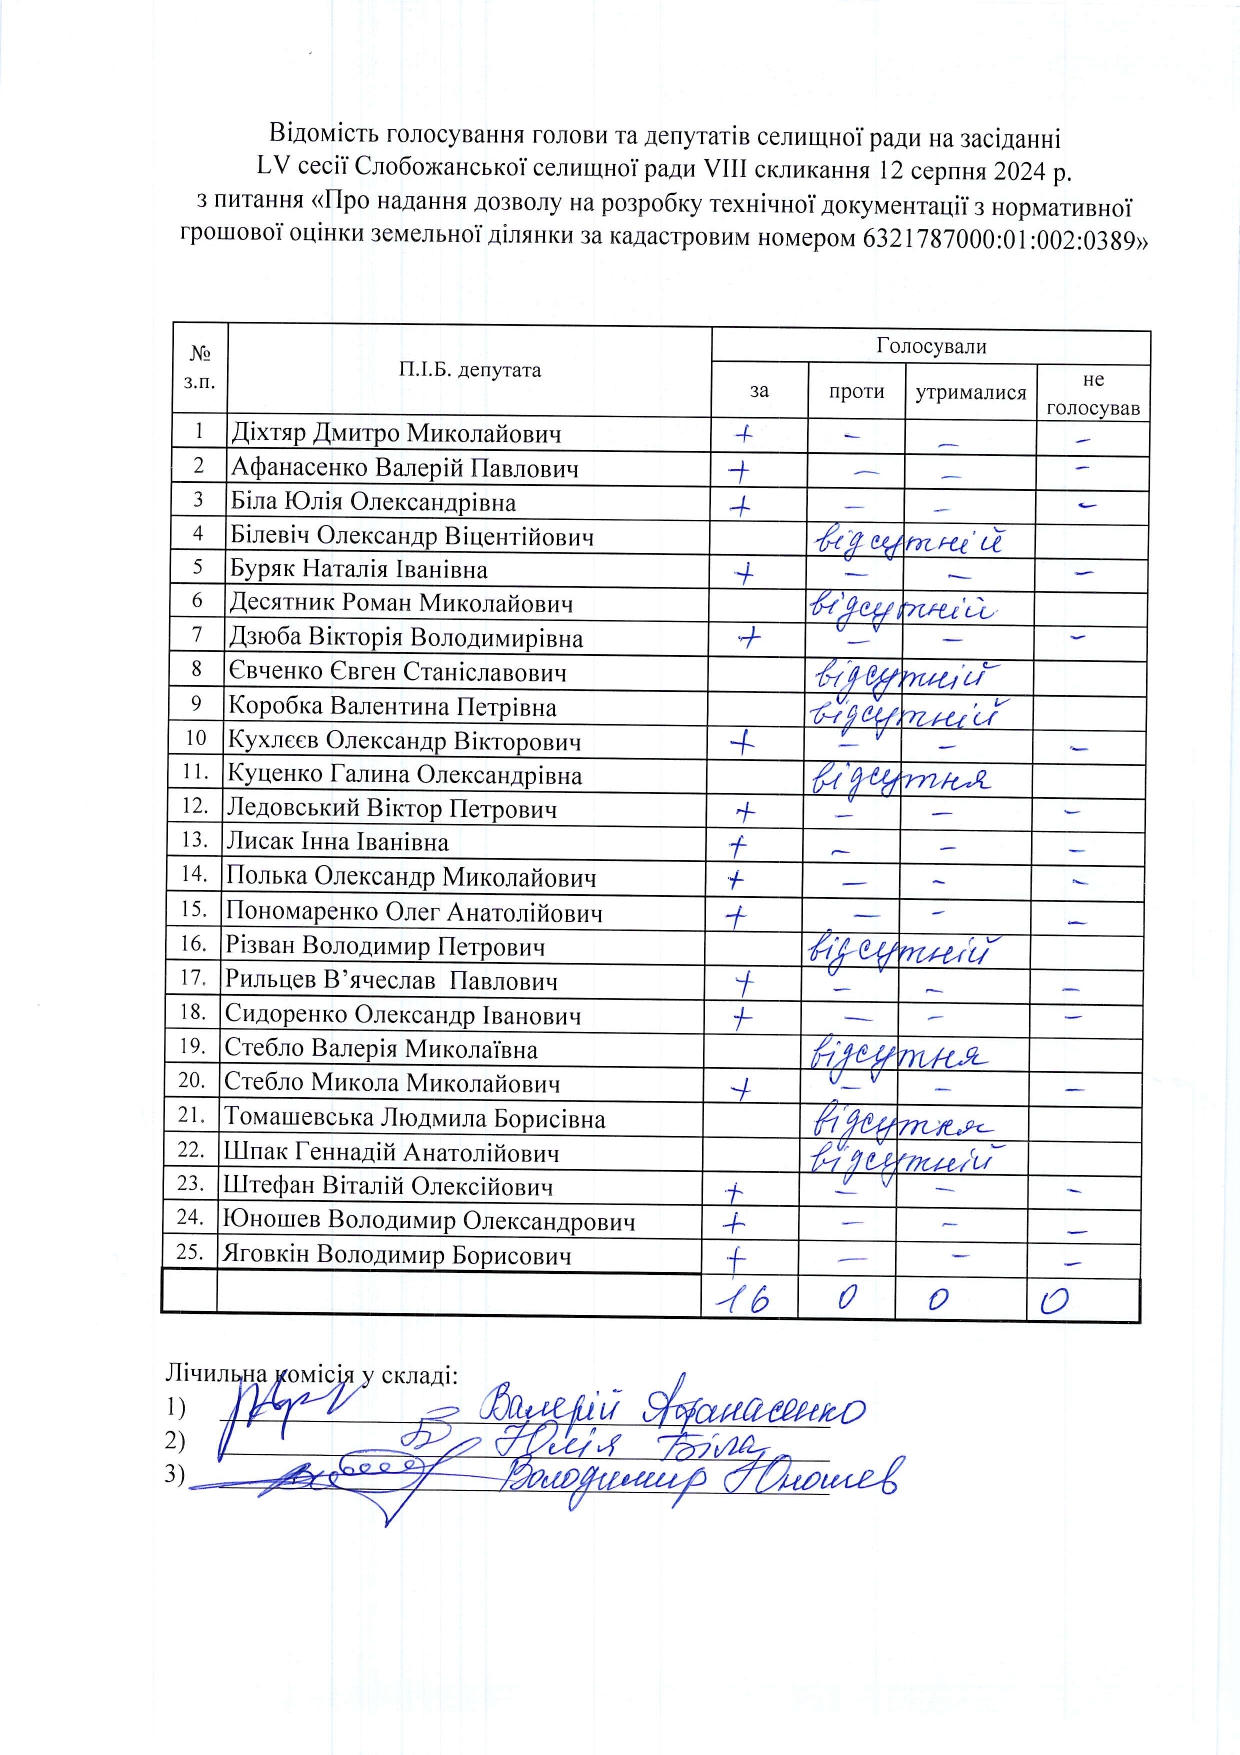 Відомість голосування голови та депутатів селищної ради на засіданні
LV сесії Слобожанської селищної ради VIII скликання 12 серпня 2024 р.
з питання «Про надання дозволу на розробку технічної документації з нормативної
грошової оцінки земельної ділянки за кадастровим номером 6321787000:01:002:0389»
№ з.п. П.І.Б. депутата Голосували
за проти утрималися не голосував
1 Діхтяр Дмитро Миколайович + – – –
2 Афанасенко Валерій Павлович + – – –
3 Біла Юлія Олександрівна + – – –
4 Білевіч Олександр Віцентійович відсутній
5 Буряк Наталія Іванівна + – – –
6 Десятник Роман Миколайович відсутній
7 Дзюба Вікторія Володимирівна + – – –
8 Євченко Євген Станіславович відсутній
9 Коробка Валентина Петрівна відсутній
10 Кухлєєв Олександр Вікторович + – – –
11. Куценко Галина Олександрівна відсутня
12. Ледовський Віктор Петрович + – – –
13. Лисак Інна Іванівна + – – –
14. Полька Олександр Миколайович + – – –
15. Пономаренко Олег Анатолійович + – – –
16. Різван Володимир Петрович відсутній
17. Рильцев В’ячеслав Павлович + – – –
18. Сидоренко Олександр Іванович + – – –
19. Стебло Валерія Миколаївна відсутня
20. Стебло Микола Миколайович + – – –
21. Томашевська Людмила Борисівна відсутня
22. Шпак Геннадій Анатолійович відсутній
23. Штефан Віталій Олексійович + – – –
24. Юношев Володимир Олександрович + – – –
25. Яговкін Володимир Борисович + – – –
16 0 0 0
Лічильна комісія у складі:
1) Валерій Афанасенко
2) Юлія Біла
3) Володимир Юношев